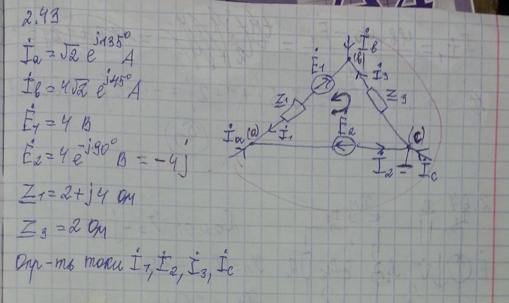 2.43
İa = √2 e^j135° A
İв = 4√2 e^j45° A
Ė1 = 4 В
Ė2 = 4 e^-j90° В = -4j
Z1 = 2 + j4 Ом
Z3 = 2 Ом
Опр-ть токи İ1, İ2, İ3, İc
İв
(в)
Ė1
İ3
Z1
Z3
İa (a)
İ1
Ė2
(c)
İ2
İc